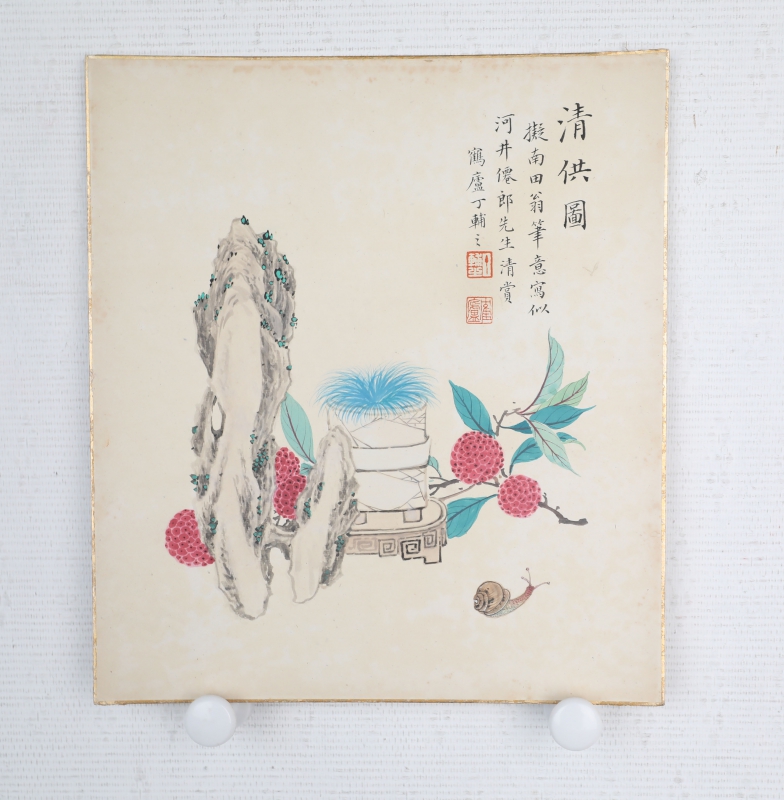 清供圖
擬南田翁筆意寫似
河井僊郎先生清賞
鶴廬丁輔之